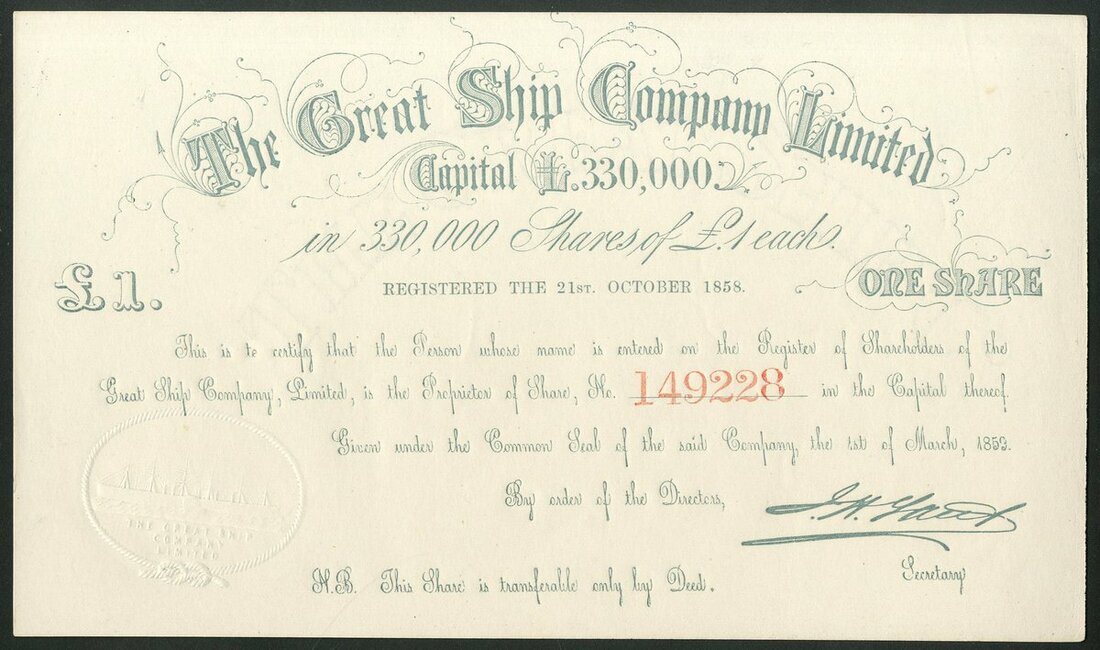 The Great Ship Company Limited
Capital £.330,000.
in 330,000 Shares of £.1 each.
REGISTERED THE 21ST. OCTOBER 1858.
£1.
ONE SHARE
This is to certify that the Person whose name is entered on the Register of Shareholders of the
Great Ship Company, Limited, is the Proprietor of Share, No. 149228 in the Capital thereof.
Given under the Common Seal of the said Company, the 1st of March, 1859.
By order of the Directors,
Secretary
THE GREAT SHIP
COMPANY
LIMITED
N.B. This Share is transferable only by Deed.